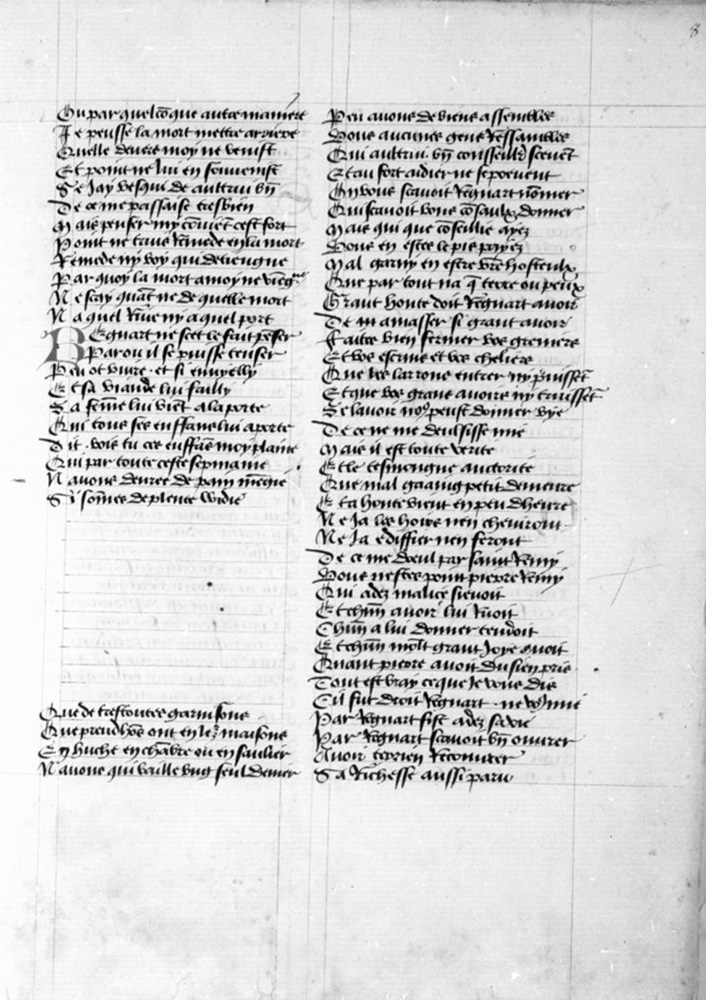 8
Ou par quelcõque autre maniere
Je peusse la mort mettre arriere
Quelle deuers moy ne venist
Et point ne lui en souuenist
Se Jay vesqui de aultrui bñ
De ce me passaisse tresbien
Mais penser my cõuiẽt cest fort
Point ne treuue Remede en la mort
Remede ny voy qui detiengne
Par quoy la mort a moy ne viẽgne
Ne scay quãt ne de quelle mort
Na quel Riue ny a quel port
Regnart ne scet le fait peser
Par ou il se puisse tenser
Peu ot viure et si enuyelly
Et sa viande lui failly
Sa feme lui viẽt a la porte
Qui tous ses enffans lui aporte
Dit vois tu ces enffãs moy plaine
Qui par toute ceste sepmaine
Nauons denree de pain mẽgie
Si somes de plente widie
Que de trestoutes garnisons
Que preudhõe ont en lez maisons
En huche en chãbre ou en saulier
Nauons qui vaille vng seul denier
Peu auons de biens assemblez
Vous aucunes gens Ressamblez
Qui aultrui bñ conseiller sceuẽt
Et au fort aidier ne se peuent
On vous scauoit Regnart nõmer
Qui scauoit bons cõsaulx donner
Mais qui que cõseillie ayez
Vous en estes le pis paiez
Mal garny en est vrẽ hosteulx
Que par tout na q̃ terre ou peulx
Grant honte doit Regnart auoir
De tm amasser si grant auoir
Faites bien fermer vos greniers
Et vos escrins et vos cheliers
Que les larrons entrer ny puissẽt
Et que vos grans auoirs ny truissẽt
Se lauoir no9 peust donner vie
De ce ne me deulsisse mie
Mais il est toute verite
Et le tesmongne auctorite
Que mal gaaing petit demeure
Et ta honte vient en peu dheure
Ne Ja les hoirs nen cheuiront
Ne Ja edifficer nen seront
De ce me doeul par saint Remy
Vous nestes point pierre Remy
Qui adez malice sieuoit
Et chũn auoir lui Ruoit
Chũn a lui donner tendoit
Et chũn molt grant Joye auoit
Quant pierre auoit du sien prie
Tout est vray ce que Je vous die
Cil fut droit Regnart ne vo9 mie
Par Regnart fist adez sa vie
Par Regnart scauoit bñ ouurer
Auoir Recouurer
Sa Richesse aussi paru